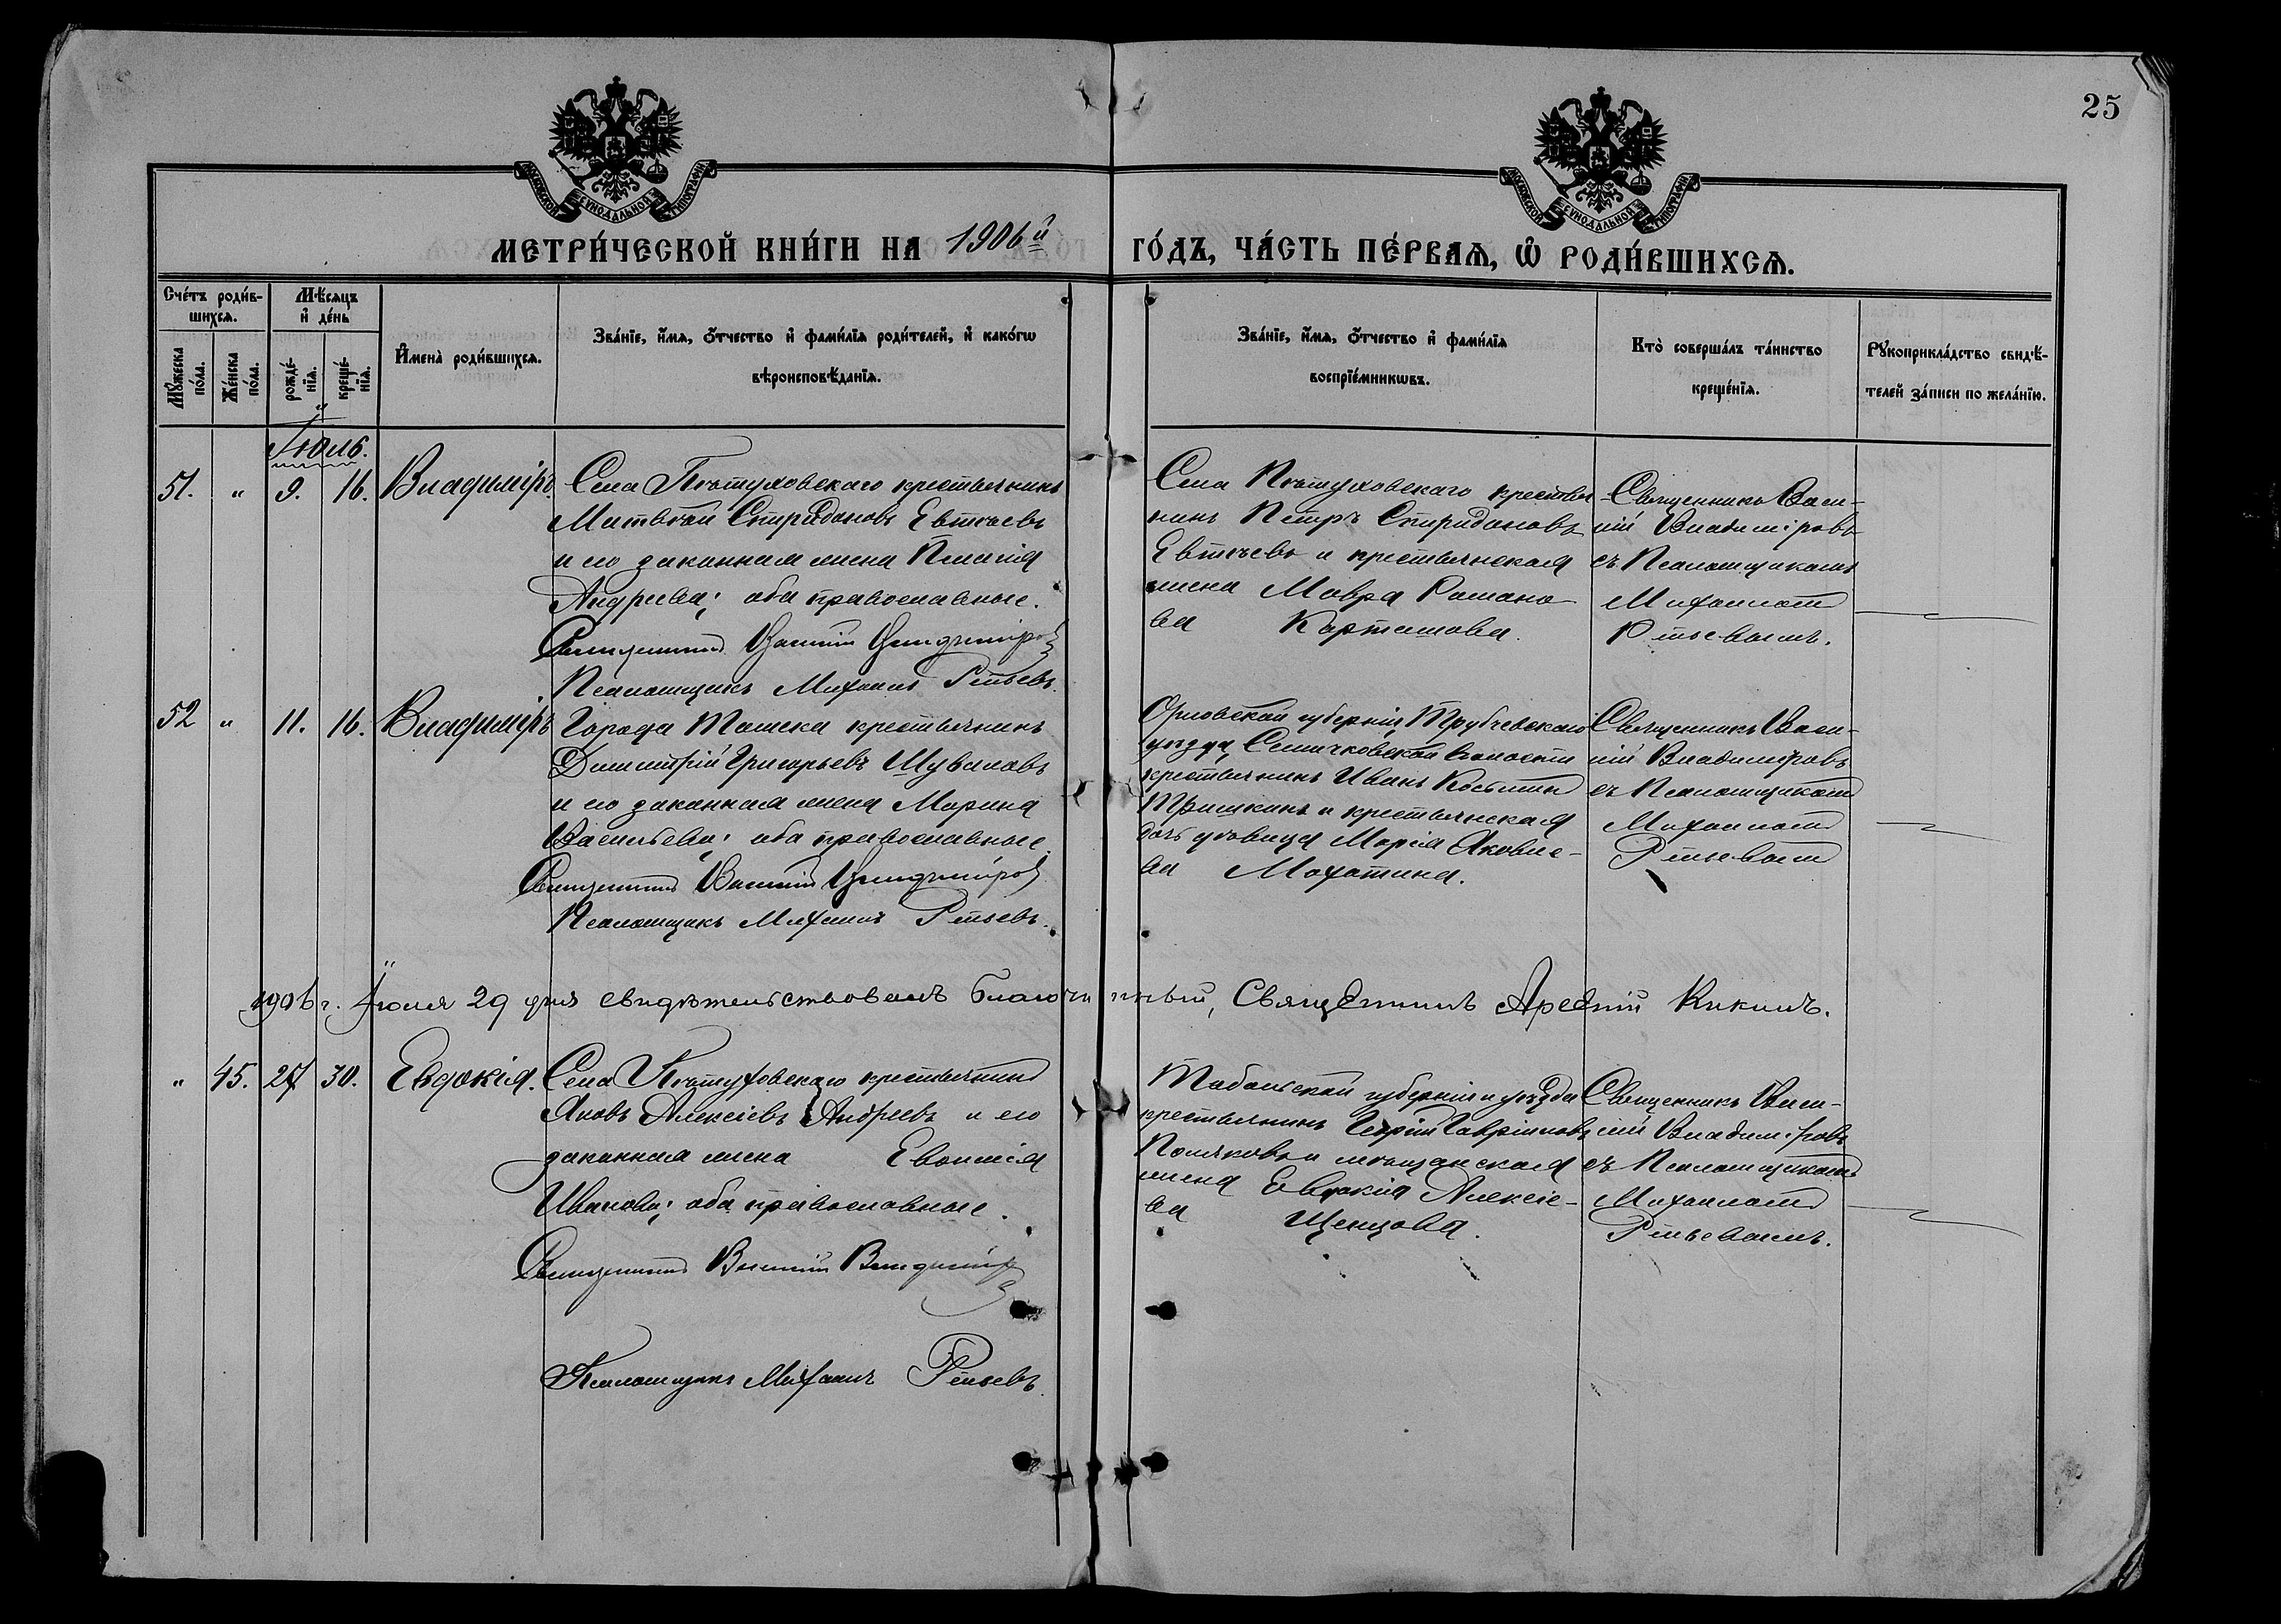 25
МОСКОВСКОЙ СѴНОДАЛЬНОЙ ТИПОГРАФІИ
МОСКОВСКОЙ СѴНОДАЛЬНОЙ ТИПОГРАФІИ
МЕТРИ́ЧЕСКОЙ КНИ́ГИ НА 1906й ГО́ДЪ, ЧА́СТЬ ПЕ́РВАѦ, Ѡ҆ РОДИ́ВШИХСѦ.
Сче́тъ роди́в-
шихсѧ.
Мꙋ́жеска по́ла.
Же́нска по́ла.
Мѣ́сяцъ
и҆ де́нь
рожде́-
нїѧ.
креще́-
нїѧ.
И҆мена̀ роди́вшихсѧ.
Зва́нїе, и҆́мѧ, ѻ҆́тчество и҆ фами́лїѧ роди́телей, и҆ како́гѡ
вѣроисповѣ́данїѧ.
Зва́нїе, и҆́мѧ, ѻ҆́тчество и҆ фами́лїѧ
воспрїе́мникѡвъ.
Кто̀ соверша́лъ та́инство
креще́нїѧ.
Рꙋкоприкла́дство свидѣ́-
телей за́писи по жела́нїю.
Іюль.
51. " 9. 16. Владиміръ.
Села Пѣтуховскаго крестьянинъ
Матвѣй Спиридоновъ Евтѣевъ
и его законная жена Пелагія
Андреева; оба православные.
Священникъ Василій Владиміровъ
Псаломщикъ Михаилъ Рѣпьевъ.
Села Пѣтуховскаго крестья-
нинъ Петръ Спиридоновъ
Евтѣевъ и крестьянская
жена Мавра Романо-
ва Карташова.
Священникъ Васи-
лій Владиміровъ
съ Псаломщикомъ
Михаиломъ
Рѣпьевымъ.
52 " 11. 16. Владиміръ
Города Томска крестьянинъ
Димитрій Григорьевъ Шуваловъ
и его законная жена Марина
Васильева; оба православные.
Священникъ Василій Владиміровъ
Псаломщикъ Михаилъ Рѣпьевъ.
Орловской губерніи, Трубчевскаго
уѣзда, Семячковской волости
крестьянинъ Иванъ
Тришкинъ и крестьянская
дочь дѣвица Марія Яковле-
ва Мохоткина.
Священникъ Васи-
лій Владиміровъ
съ Псаломщикомъ
Михаиломъ
Рѣпьевымъ
1906 г. Іюля 29 дня свидѣтельствовалъ благочинный, Священникъ Арсеній Кикинъ.
" 45. 27 30. Евдокія.
Села Пѣтуховскаго крестьянинъ
Яковъ Алексіевъ Андреевъ и его
законная жена Евфимія
Иванова; оба православные.
Священникъ Василій Владиміровъ
Псаломщикъ Михаилъ Рѣпьевъ.
Тобольской губерніи и уѣзда
крестьянинъ Георгій Гавріиловъ
Поляковъ и мѣщанская
жена Евдокія Алексіе-
ва Щенцова.
Священникъ Васи-
лій Владиміровъ
съ Псаломщикомъ
Михаиломъ
Рѣпьевымъ.